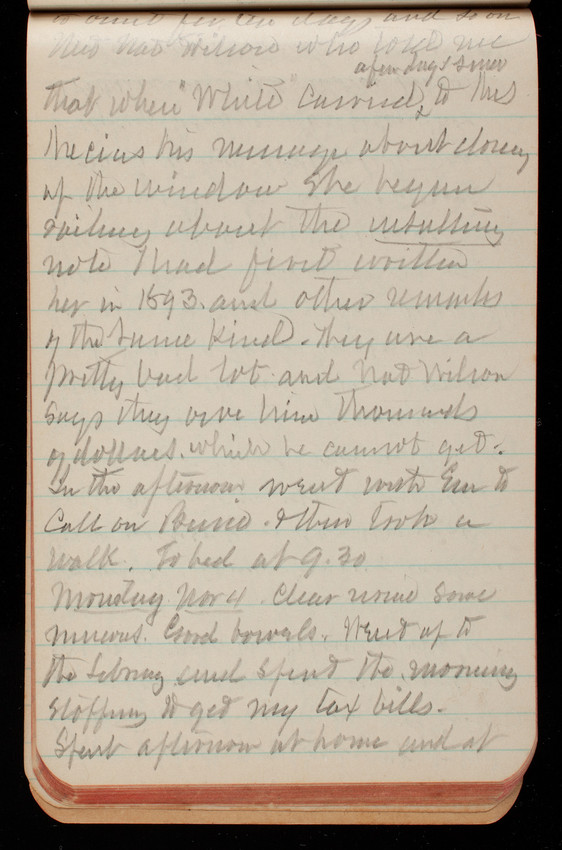 days and so on
Met Nat Wilson who told me
a few days since
that when "White" carried, to Mrs
his message about closing
of the window she began
about the insulting
note I had first written
her in 1893. and other remarks
of the same kind. They are a
pretty bad lot. and Nat Wilson
says they owe him thousands
of dollars. which he cannot get.
In the afternoon went with Em to
call on . I then took a
walk. To bed at 9.30
Monday Nov 4. Clear some
mucous. Good bowels. Went up to
the Library and spent the morning
stopping to get my tax bills.
Spent afternoon at home and at